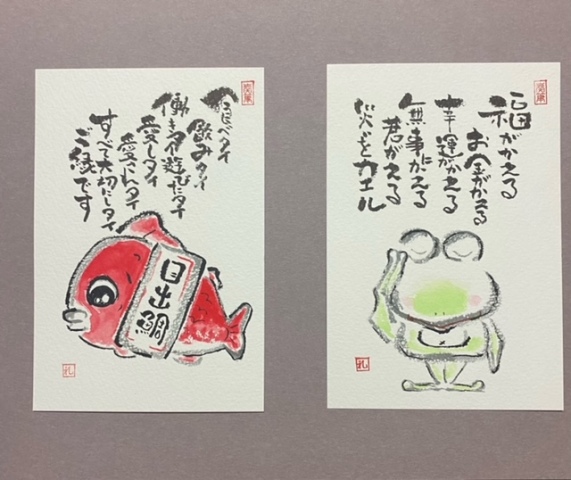 食べタイ
飲みタイ
働きタイ遊びタイ
愛しタイ
愛されタイ
すべて大切にしタイ
ご縁です
目出鯛
福がかえる
お金がかえる
幸運がかえる
無事にかえる
若がえる
カエル